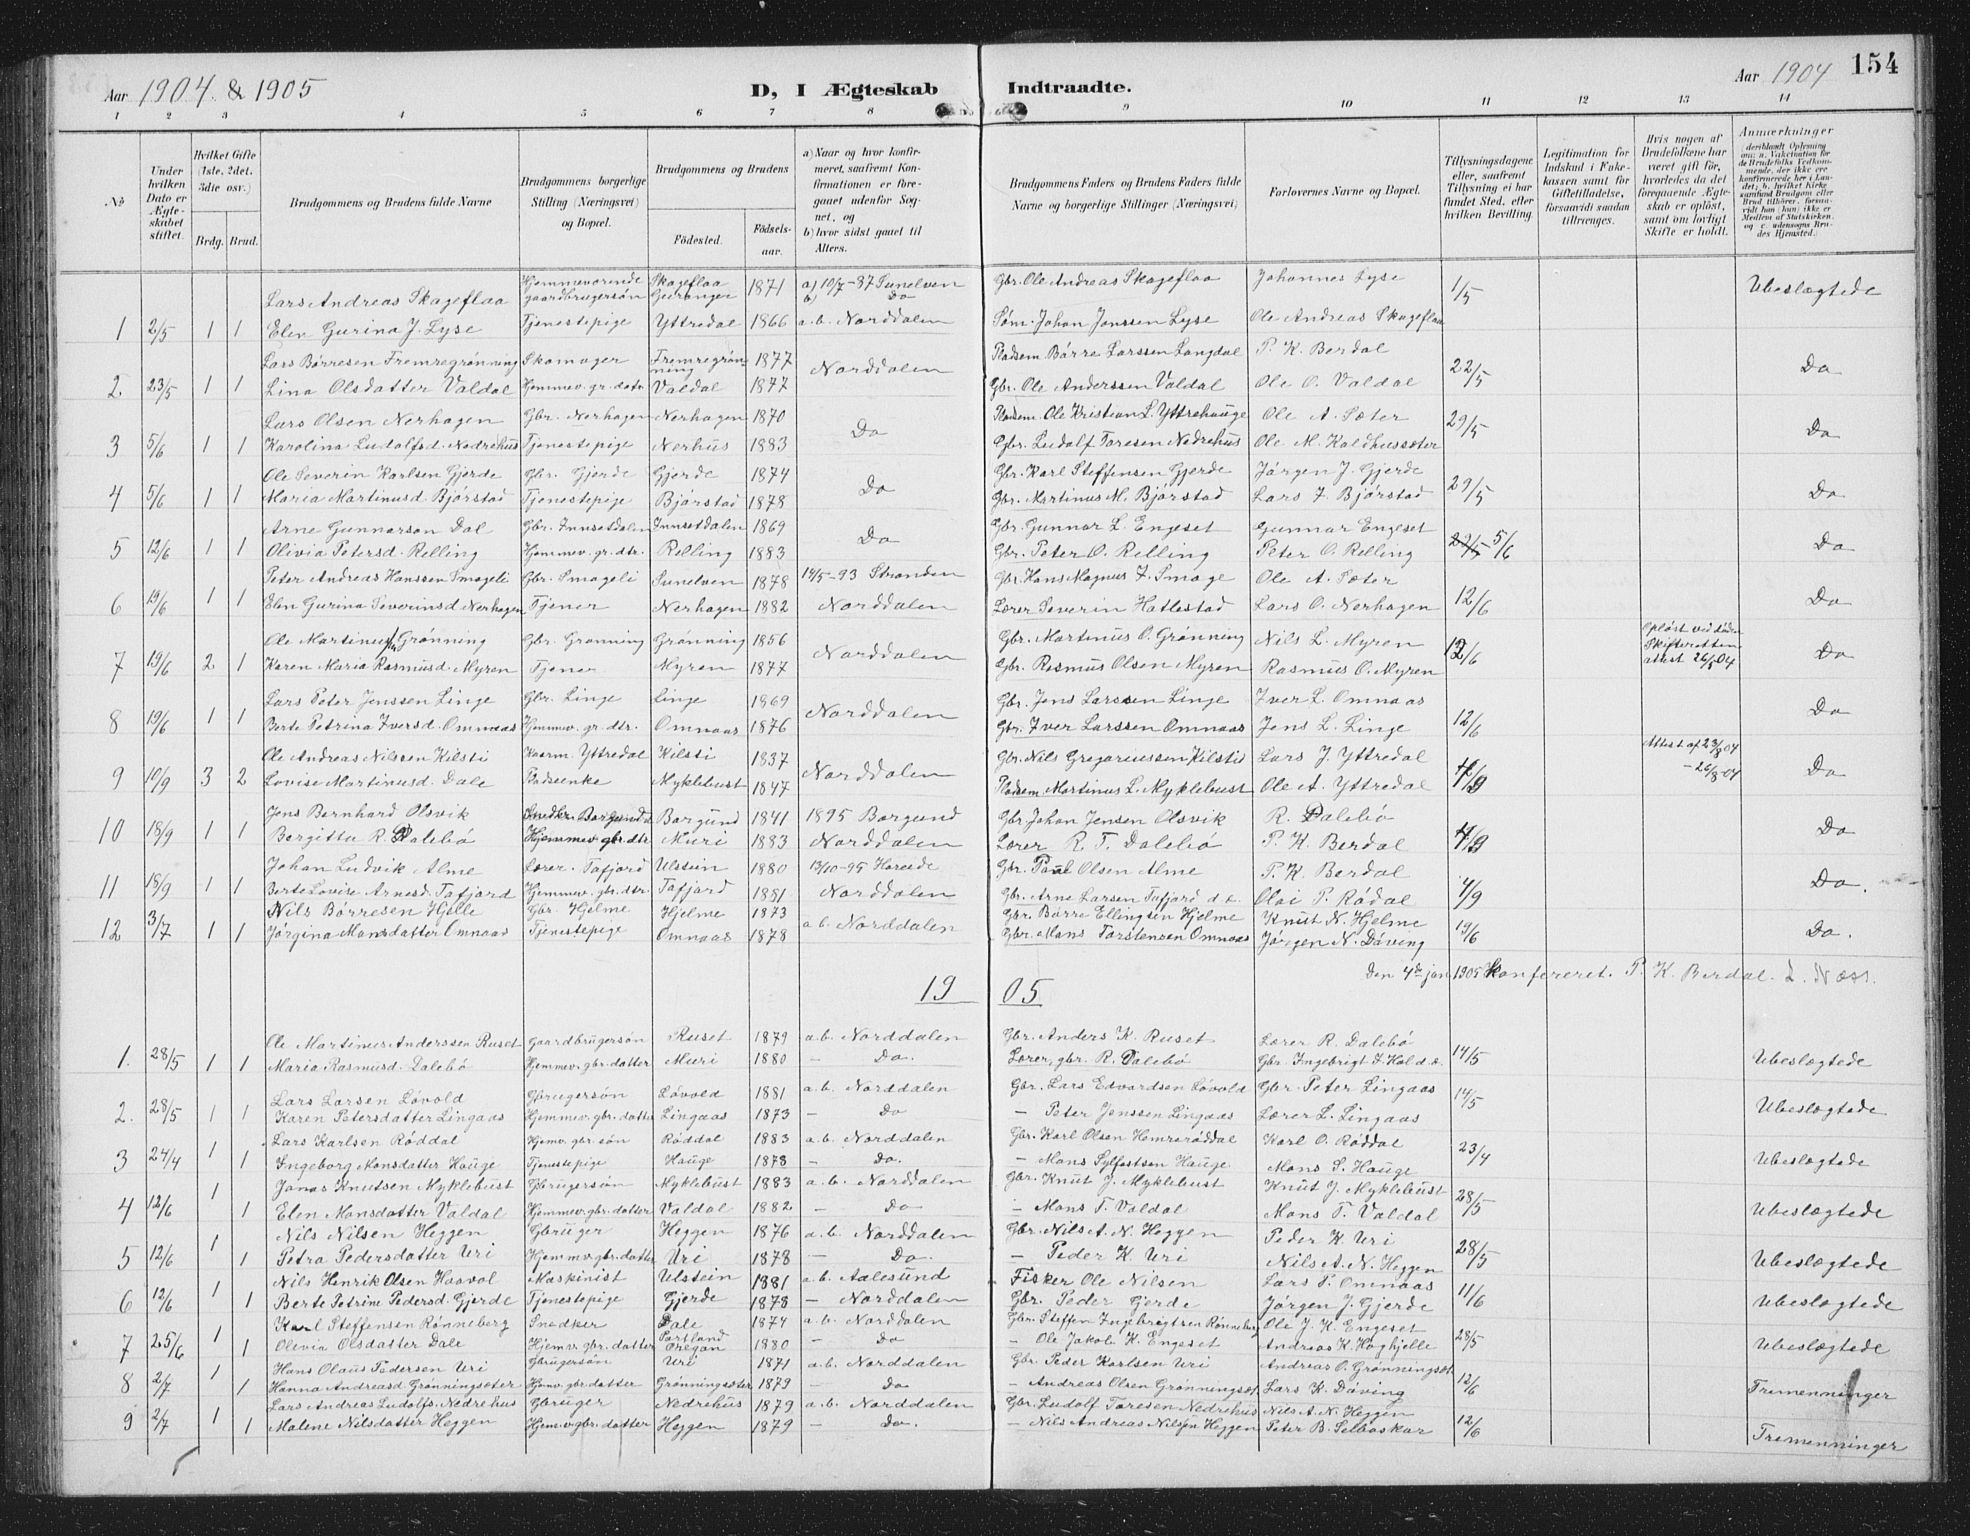 Aar 1904 & 1905
D, I Ægteskab Indtraadte.
Aar 1904
154
1 2 3 4 5 6 7 8 9 10 11 12 13 14
No
Under hvilken Dato er Ægteskabet stiftet.
Hvilket Gifte (1ste, 2det, 3die osv.)
Brdg. Brud.
Brudgommens og Brudens fulde Navne
Brudgommens borgerlige Stilling (Næringsvei) og Bopæl.
Brudgommens og Brudens
Fødested.
Fødselsaar.
a) Naar og hvor konfirmeret, saafremt Konfirmationen er foregaaet udenfor Sognet, og
b) hvor sidst gaaet til Alters.
Brudgommens Faders og Brudens Faders fulde Navne og borgerlige Stillinger (Næringsvei)
Forlovernes Navne og Bopæl.
Tillysningsdagene eller, saafremt Tillysning ei har fundet Sted, efter hvilken Bevilling.
Legitimation for Indskud i Enkekassen samt for Giftetilladelse, forsaavidt saadan tiltrænges.
Hvis nogen af Brudefolkene har været gift før, hvorledes da det foregaaende Ægteskab er opløst, samt om lovligt Skifte er holdt.
Anmerkninger (deriblandt Oplysning om: a. Vakcination for de Brudefolks Vedkommende, der ikke ere konfirmerede her i Landet; b. hvilket Kirkesamfund Brudgom eller Brud tilhører, forsaavidt han (hun) ikke er Medlem af Statskirken, og c. udensogns Brudes Hjemsted.)
Lars Andreas Skageflaa Hjemmeværende gaardbrugersøn Skageflaa Geiranger 1871 a) 10/7-87 Sunelven b) Do Gbr. Ole Andreas Skageflaa Johannes Lyse 1/5 Ubeslægtede
1 2/5 1 1 Elen Gurina J. Lyse Tjenestepige Yttredal 1866 a.b. Norddalen Søm. Johan Jonssen Lyse Ole Andreas Skageflaa
Lars Børresen Fremregrønning Skomager Fremregrønning 1877 Norddalen Pladsem. Børre Larssen Langdal P. K. Berdal 22/5 Do
2 23/5 1 1 Lina Olsdatter Valdal Hjemmev. gr. datr. Valdal 1877 Gbr. Ole Anderssen Valdal Ole O. Valdal
Lars Olsen Nerhagen Gbr. Nerhagen Nerhagen 1870 Do Pladsem. Ole Kristian L. Yttrehauge Ole A. Sæter 29/5 Do
3 5/6 1 1 Karolina Ludolfsd. Nedrehus Tjenestepige Nerhus 1883 Gbr. Ludolf Toresen Nedrehus Ole M. Kaldhussæter
Ole Severin Karlsen Gjerde Gbr. Gjerde Gjerde 1874 Do Gbr. Karl Steffensen Gjerde Jørgen J. Gjerde 29/5 Do
4 5/6 1 1 Maria Martinusd. Bjørstad Tjenestepige Bjørstad 1878 Gbr. Martinus M. Bjørstad Lars I. Bjørstad
Arne Gunnarson Dal Gbr. Innsetdalen Innsetdalen 1869 Do Gbr. Gunnar L. Engeset Gunnar Engeset 29/5 5/6 Do
5 12/6 1 1 Olivia Petersd. Relling Hjemmev. gr. dtr. Relling 1883 Gbr. Peter O. Relling Peter O. Relling
Peter Andreas Hanssen Smogeli Gbr. Smogeli Sunelven 1878 14/5-93 Stranden Gbr. Hans Magnus I. Smoge Ole A. Sæter 12/6 Do
6 19/6 1 1 Elen Gurina Severinsd. Nerhagen Tjener Nerhagen 1882 Norddalen Lærer Severin Hatlestad Lars O. Nerhagen
Ole Martinus Grønning Gbr. Grønning Grønning 1856 Norddalen Gbr. Martinus O. Grønning Nils L. Myren 12/6 Opløst ved døden Skifteretten attest 26/5 04 Do
7 19/6 2 1 Karen Maria Rasmusd. Myren Tjener Myren 1877 Gbr. Rasmus Olsen Myren Rasmus O. Myren
Lars Peter Jenssen Linge Gbr. Linge Linge 1869 Norddalen Gbr. Jens Larssen Linge Iver L. Omnaas 12/6 Do
8 19/6 1 1 Berte Petrina Iversd. Omnaas Hjemmev. gr. dtr. Omnaas 1876 Gbr. Iver Larssen Omnaas Jens L. Linge
Ole Andreas Nilssen Kilsti Kaarm. Yttredal Kilsti 1837 Norddalen Gbr. Nils Gregoriussen Kilsti Lars J. Yttredal 4/9 Attest af 23/8 04 - 26/8 04 Do
9 10/9 3 2 Lovise Martinusd. Dale Pladsenke Myklebust 1847 Pladsem. Martinus L. Myklebust Ole A. Yttredal
Jens Bernhard Olsvik Snedker Borgund Borgund 1841 1895 Borgund Gbr. Johan Jensen Olsvik R. Dalebø 4/9 Do
10 18/9 1 1 Bergitta R. Dalebø Hjemmev. gbr. dtr. Muri 1883 Norddalen Lærer R. T. Dalebø P. K. Berdal
Johan Ludvik Alme Lærer. Tafjord Ulstein 1880 13/10-95 Hareide Gbr. Paul Olsen Alme P. K. Berdal 4/9 Do.
11 18/9 1 1 Berte Lovise Arnesd. Tafjord Hjemmev. gbr. dtr. Tafjord 1881 Norddalen Gbr. Arne Larsen Tafjord d.e. Olai P. Rødal
Nils Børresen Hjelle Gbr. Hjelme Hjelme 1873 a.b. Norddalen Gbr. Børre Ellingsen Hjelme Knut N. Hjelme 19/6 Do.
12 3/7 1 1 Jørgina Monsdatter Omnaas Tjenestepige Omnaas 1878 Gbr. Mons Torstensen Omnaas Jørgen N. Døving
Den 4de jan 1905 Konfereret. P. K. Berdal. L. Næss.
1905
Ole Martinus Anderssen Ruset Gaardbrugersøn Ruset 1879 a.b. Norddalen Gbr. Anders K. Ruset Lærer R. Dalebø 14/5 Ubeslægtede
1. 28/5 1 1 Maria Rasmusd. Dalebø Hjemmev. gbr. datter Muri 1880 - Do. Lærer, gbr. R. Dalebø Gbr. Ingebrigt I. Hol d.æ.
Lars Larsen Løvold Gbrugersøn Løvold 1881 a.b. Norddalen Gbr. Lars Edvardsen Løvold Gbr. Peter Lingaas 14/5 Ubeslægtede
2. 28/5 1 1 Karen Petersdatter Lingaas Hjemmev. gbr. datter Lingaas 1873 - Do - Peter Jenssen Lingaas Lærer L. Lingaas
Lars Karlsen Røddal Hjemv. gbr. søn Røddal 1883 a.b. Norddalen Gbr. Karl Olsen Hemrerøddal Karl O. Røddal 23/4 Ubeslægtede
3 24/4 1 1 Ingeborg Monsdatter Hauge Tjenestepige Hauge 1878 - Do. - Mons Sylfestsen Hauge Mons S. Hauge
Jonas Knutsen Myklebust Gbrugersøn Myklebust 1883 a.b. Norddalen Gbr. Knut J. Myklebust Knut J. Myklebust 28/5 Ubeslægtede
4 12/6 1 1 Elen Monsdatter Valdal Hjemmev. gbr. datter Valdal 1882 - Do - Mons T. Valdal Mons T. Valdal
Nils Nilsen Heggen Gbruger Heggen 1876 a.b. Norddalen Gbr. Nils A. N. Heggen Peder K. Uri 28/5 Ubeslægtede
5 12/6 1 1 Petra Pedersdatter Uri Hjemmev. gbr. datter Uri 1878 - Do. - Peder K. Uri Nils A. N. Heggen
Nils Henrik Olsen Haavol Maskinist Ulstein 1881 a.b. Aalesund Fisker Ole Nilsen Lars P. Omnaas 11/6 Ubeslægtede
6 12/6 1 1 Berte Petrine Pedersd. Gjerde Tjenestepige Gjerde 1878 - Norddalen Gbr. Peder Gjerde Jørgen J. Gjerde
Karl Steffensen Rønneberg Snedker Dale 1874 a.b. Norddalen Gbr. Steffen Ingebrigtsen Rønneberg Ole J. K. Engeset 28/5 Ubeslægtede
7 25/6 1 1 Olivia Olsdatter Dale Hjemv. gbr. datter Portland Oregon 1880 - Do - Ole Jakob K. Engeset Andreas K. Høghjelle
Hans Olaus Pedersen Uri Gbrugersøn Uri 1871 a.b. Norddalen Gbr. Peder Karlsen Uri Andreas O. Grønningsæt. 12/6 Tremenninger
8 2/7 1 1 Hanna Andreasd. Grønningsæter Hjemv. gbr. datter Grønningsæter 1879 - Do - Andreas Olsen Grønningsæt. Lars K. Døving
Lars Andreas Ludolfs. Nedrehus Gbruger Nedrehus 1879 a.b. Norddalen Gbr. Ludolf Toresen Nedrehus Nils A. N. Heggen 12/6 Tremenninger
9 2/7 1 1 Malene Nilsdatter Heggen Hjemv. gbr. datter Heggen 1879 - Do. - Nils Andreas Nilsen Heggen Peter B. Selboskar